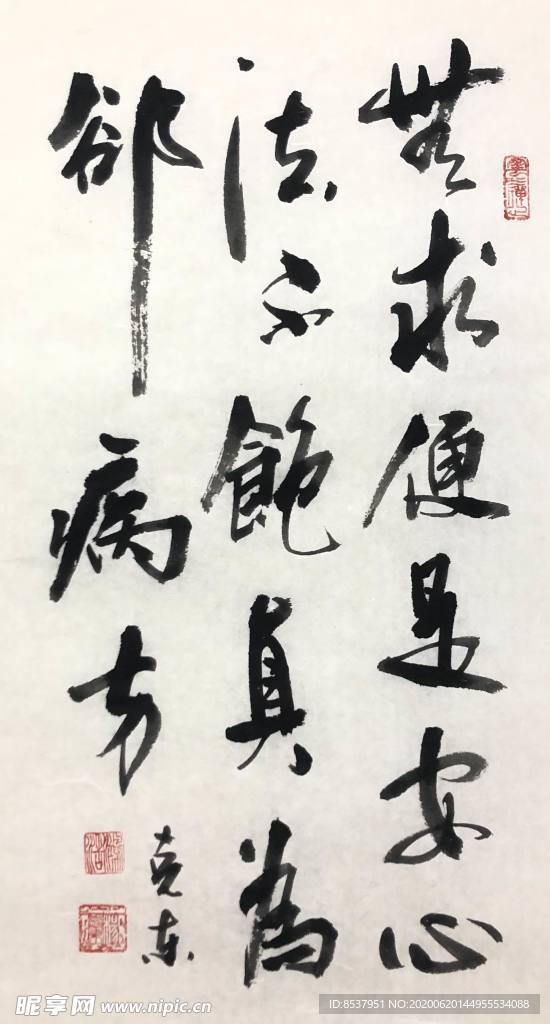 無求便是安心
法不飽真為
卻病方
克东
昵享网 www.nipic.cn
ID:8537951 NO:20200620144955534088